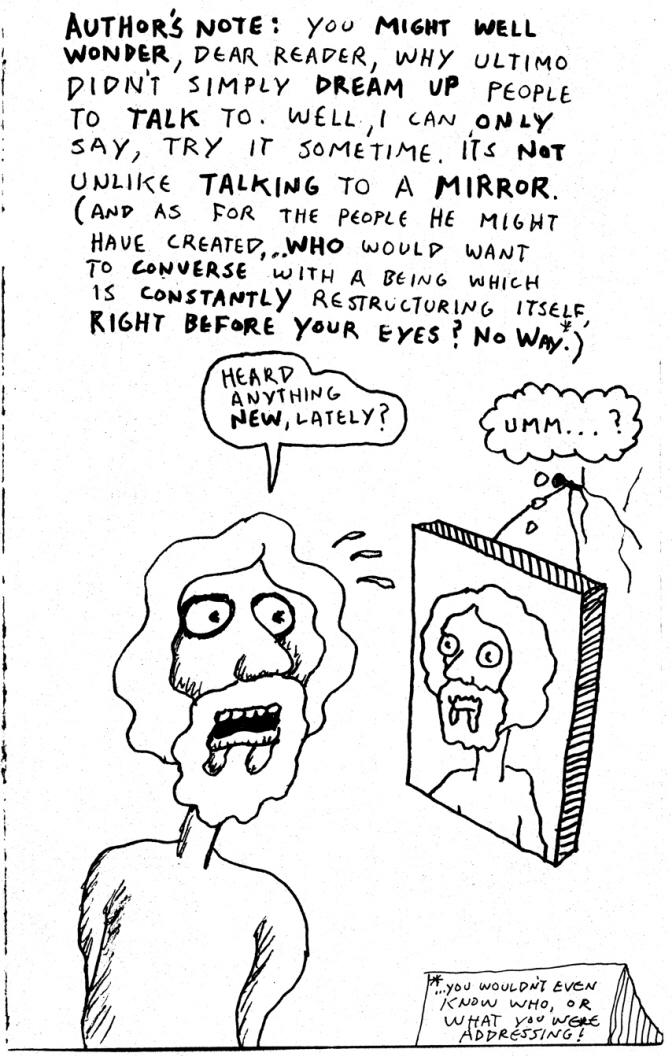 AUTHOR'S NOTE: YOU MIGHT WELL
WONDER, DEAR READER, WHY ULTIMO
DIDN'T SIMPLY DREAM UP PEOPLE
TO TALK TO. WELL, I CAN ONLY
SAY, TRY IT SOMETIME. ITS NOT
UNLIKE TALKING TO A MIRROR.
(AND AS FOR THE PEOPLE HE MIGHT
HAVE CREATED,..WHO WOULD WANT
TO CONVERSE WITH A BEING WHICH
IS CONSTANTLY RESTRUCTURING ITSELF,
RIGHT BEFORE YOUR EYES? NO WAY*.)
HEARD
ANYTHING
NEW, LATELY?
UMM...?
*...YOU WOULDN'T EVEN
KNOW WHO, OR
WHAT YOU WERE
ADDRESSING!